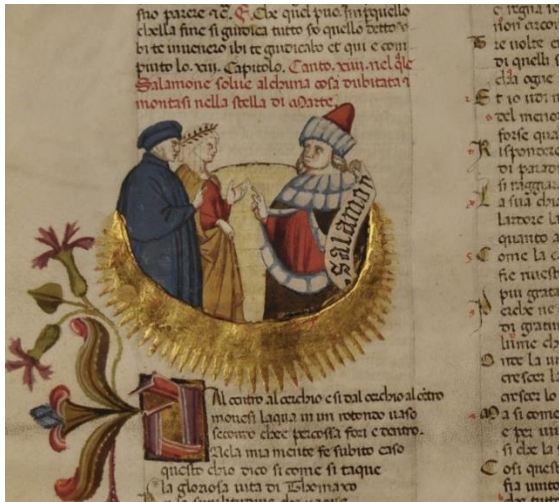 suo parere &c. E. Che quel puo. Impquello
chella fine si giudica tutto so quello detto v
bi te inuenero ibi te giudicabo et qui e com
piuto lo .xiii. Capitolo. Canto .xiiii. nel qle
Salamone solue alchuna cosa dubitata &
montasi nella stella di Marte.
salamon
Al centro al cerchio e si dal cerchio al cētro
mouesi laqua in un rotondo uaso
secondo che e percossa fori e dentro.
Nela mia mente fe subito caso
questo chio dico si come si taque
la gloriosa uita di Thomaxo
e regna
non circon
Tre uolte
di quelli s
cha ogne
Et io udi n
del menor
forse qual
Rispondere
di paradi
si raggia
La sua chia
lardore la
quanto a
Come la ca
fie riuest
piu grata
di gratui
lume ch
Onte la ui
crescer la
crescer lo
Ma si come
e per uiu
si che la
Cosi quest
fia uinto